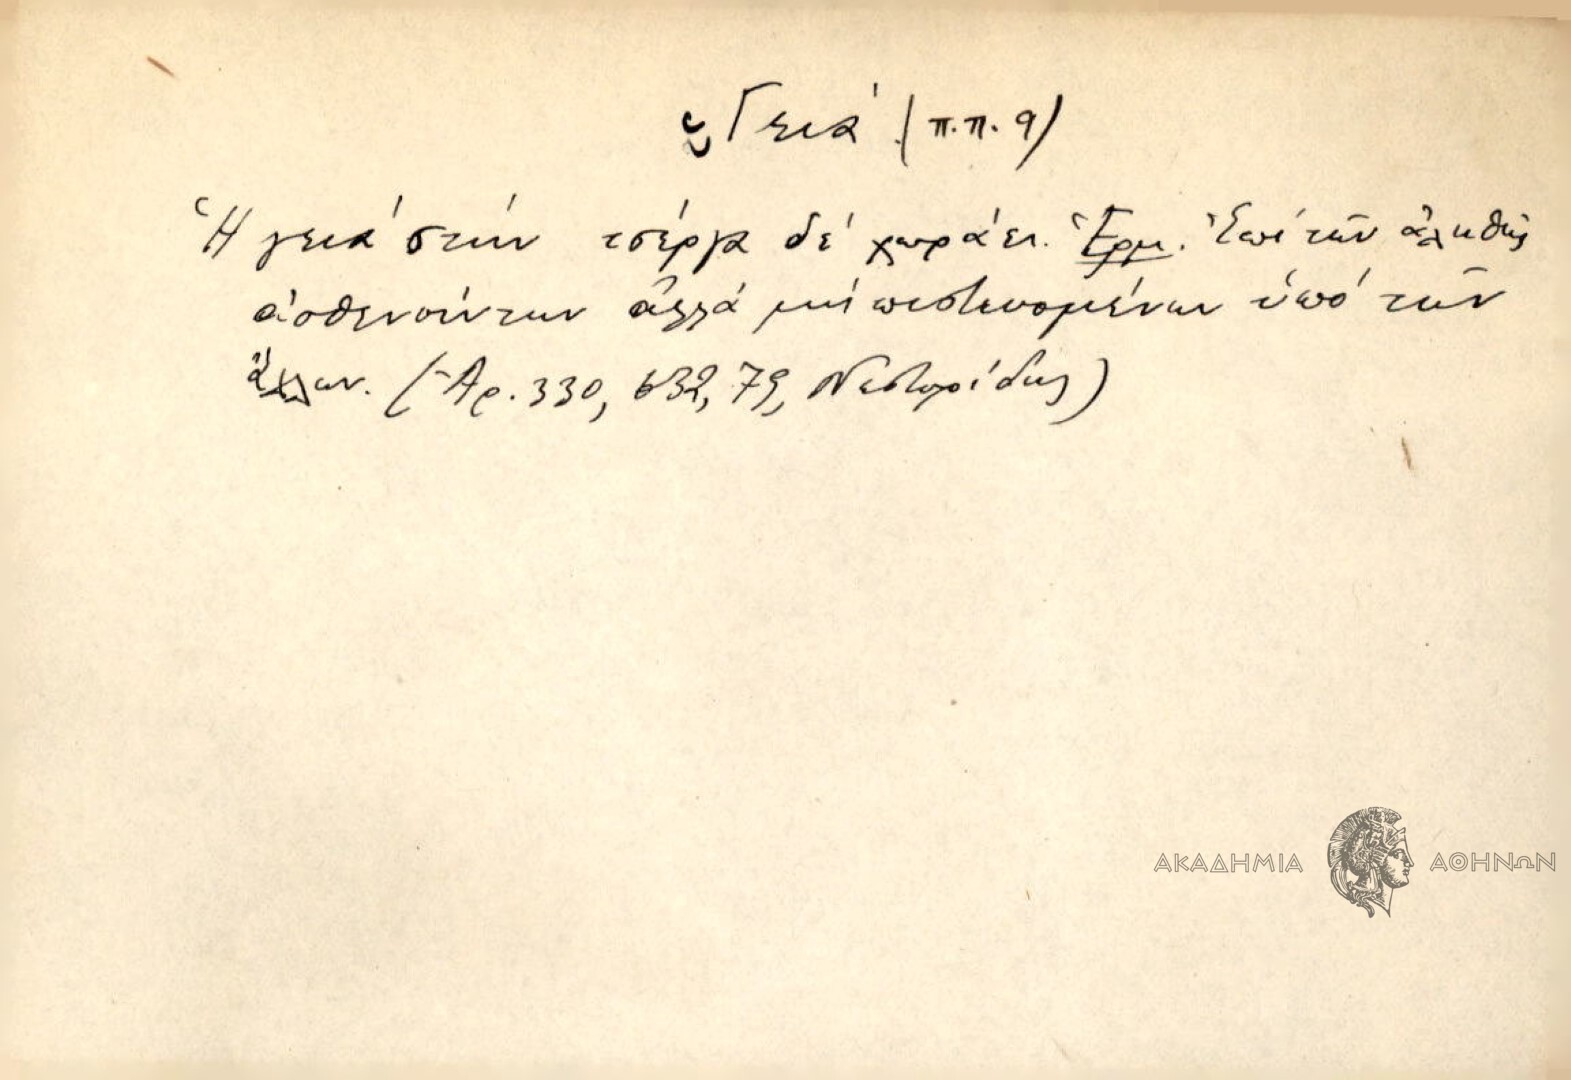 ὑΓειά (π.π. 9)
Ἡ γειά στήν τσέργα δέ χωράει. Ἑρμ. Ἐπί τῶν ἀληθῶς
ἀσθενούντων ἀλλά μή πιστευομένων ὑπό τῶν
ἄλλων. (Ἀρ. 330, 632, 79, Νεστορίδης)
ΑΚΑΔΗΜΙΑ ΑΘΗΝΩΝ